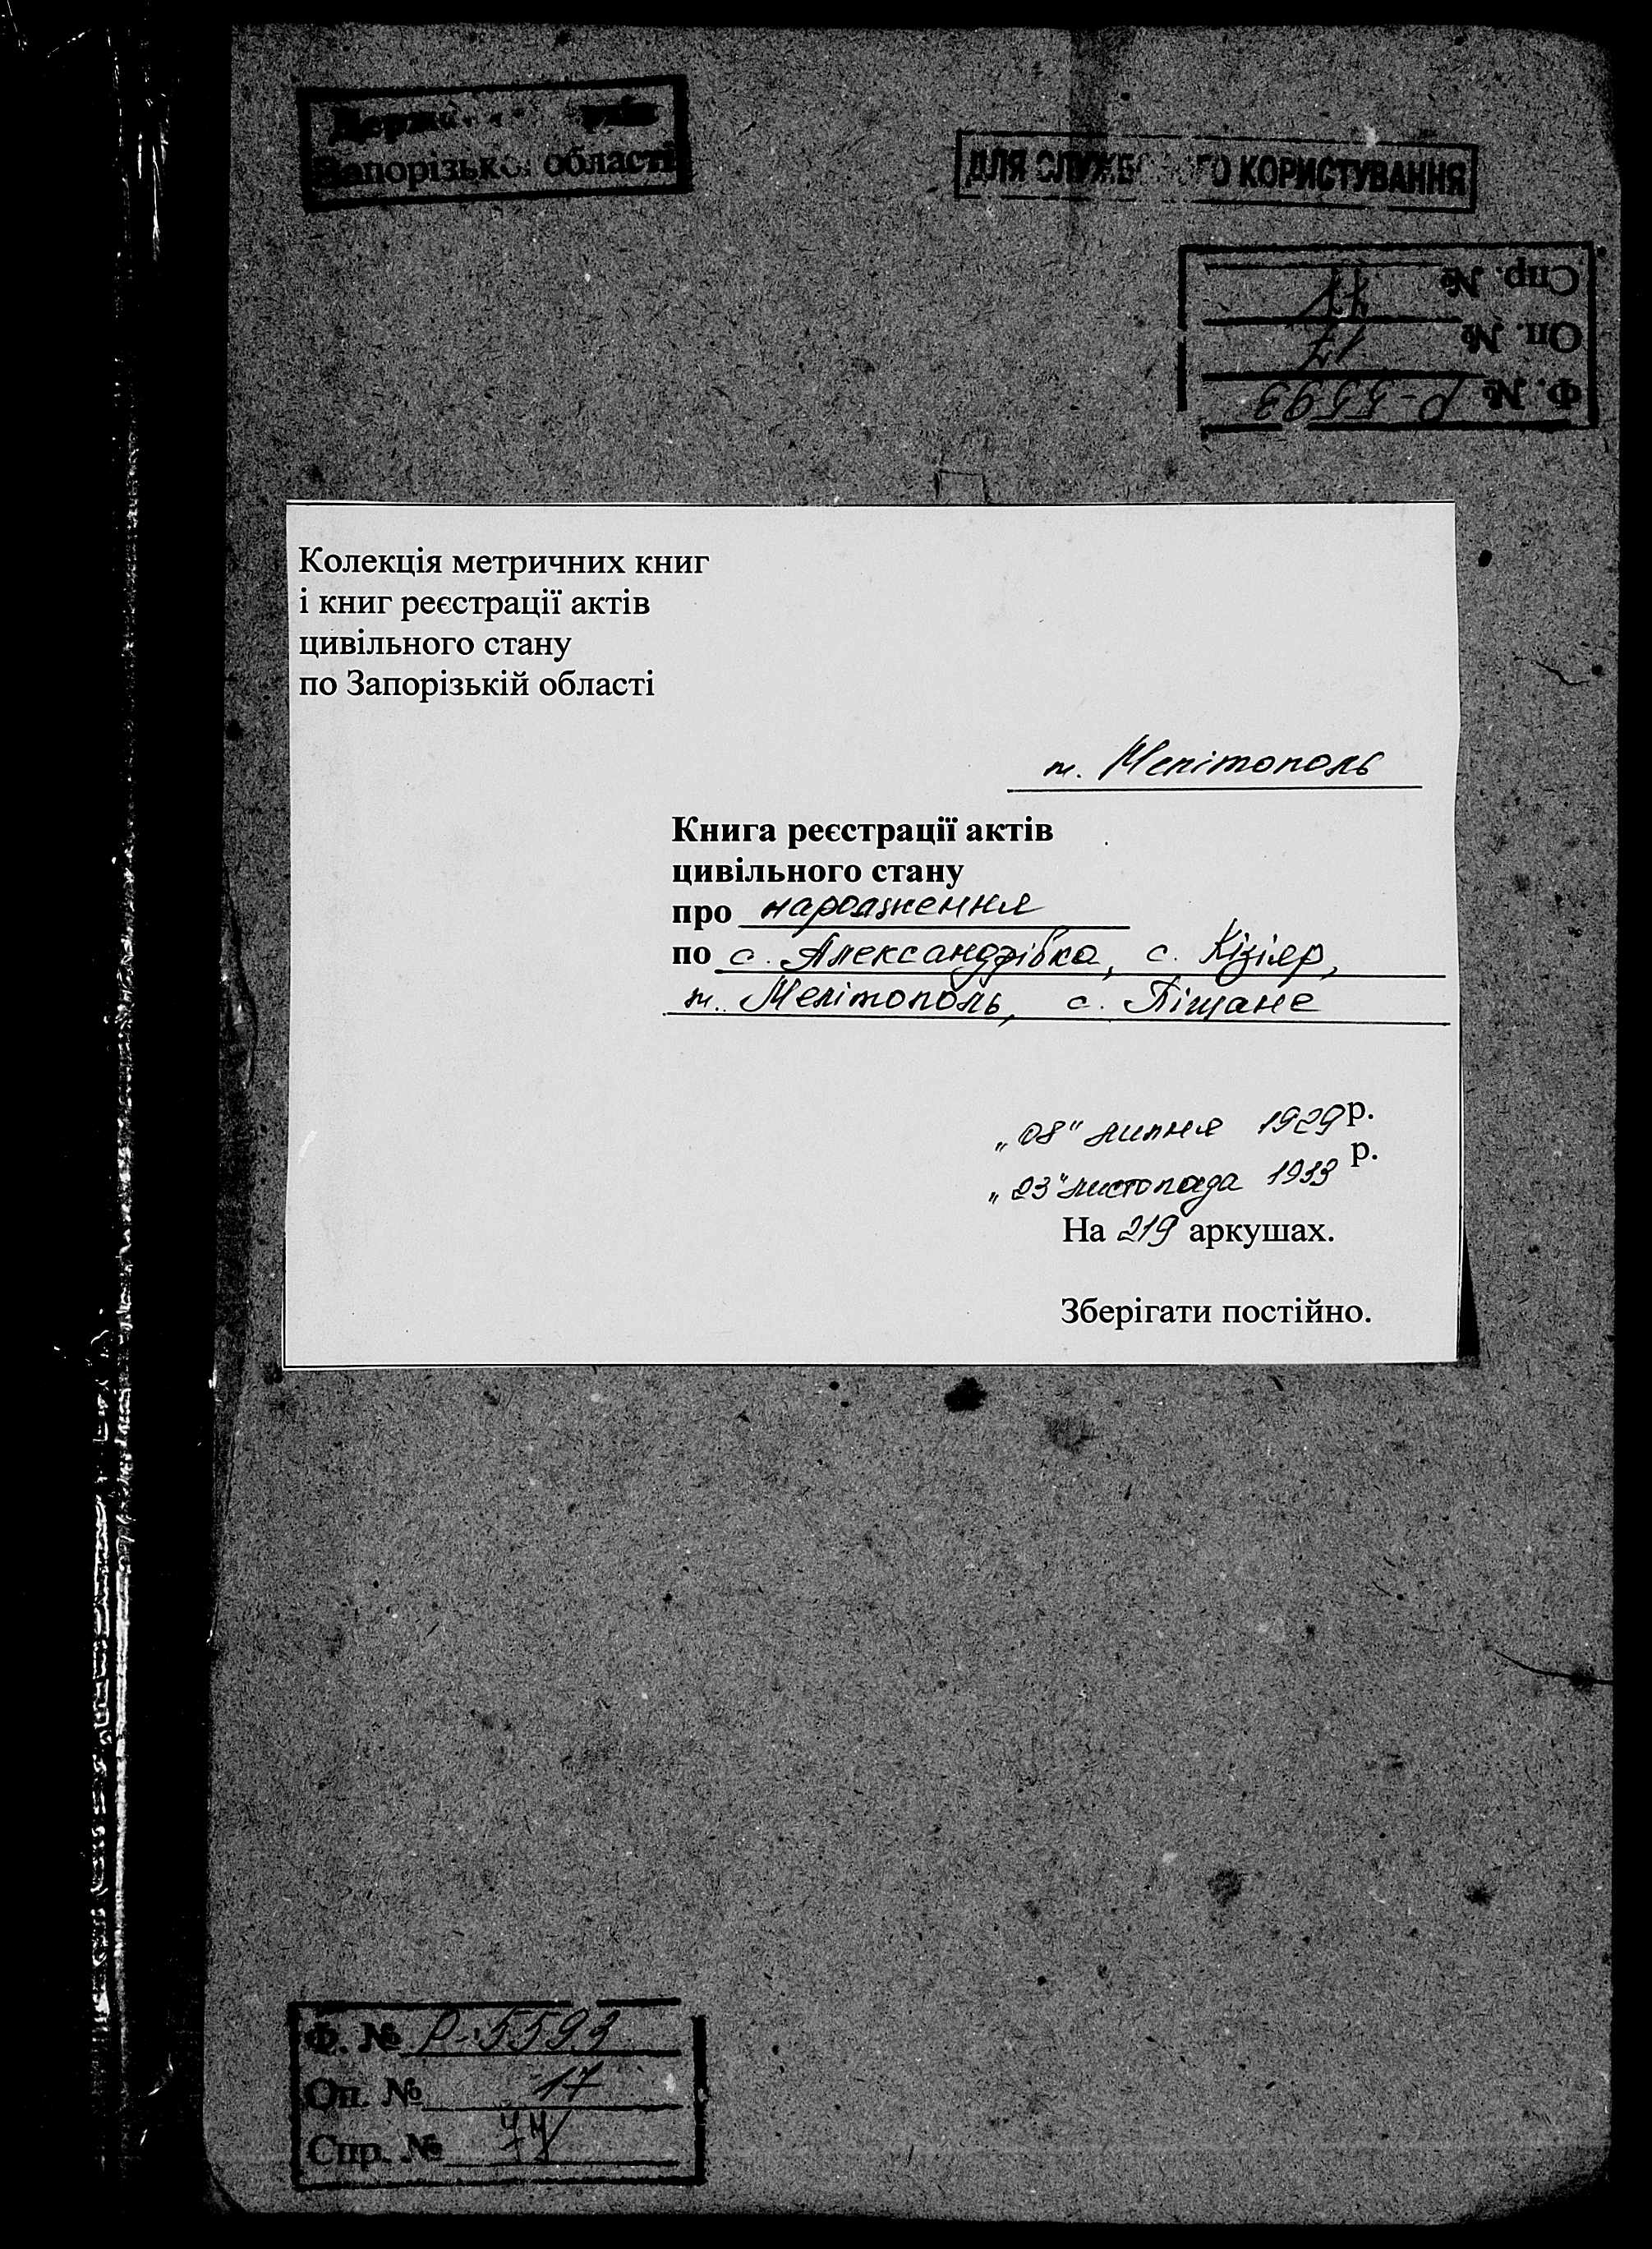 Запорізької області
ДЛЯ СЛУЖБОВОГО КОРИСТУВАННЯ
Ф. № Р-5593
Оп. № 17
Спр. №
Колекція метричних книг
і книг реєстрації актів
цивільного стану
по Запорізькій області
м. Мелітополь
Книга реєстрації актів
цивільного стану
про народження
по с. Александрівка, с. Кізіяр,
м. Мелітополь, с. Піщане
„08" липня 1929 р.
„23" листопада 1933 р.
На 219 аркушах.
Зберігати постійно.
Ф. № Р-5593
Оп. № 17
Спр. №